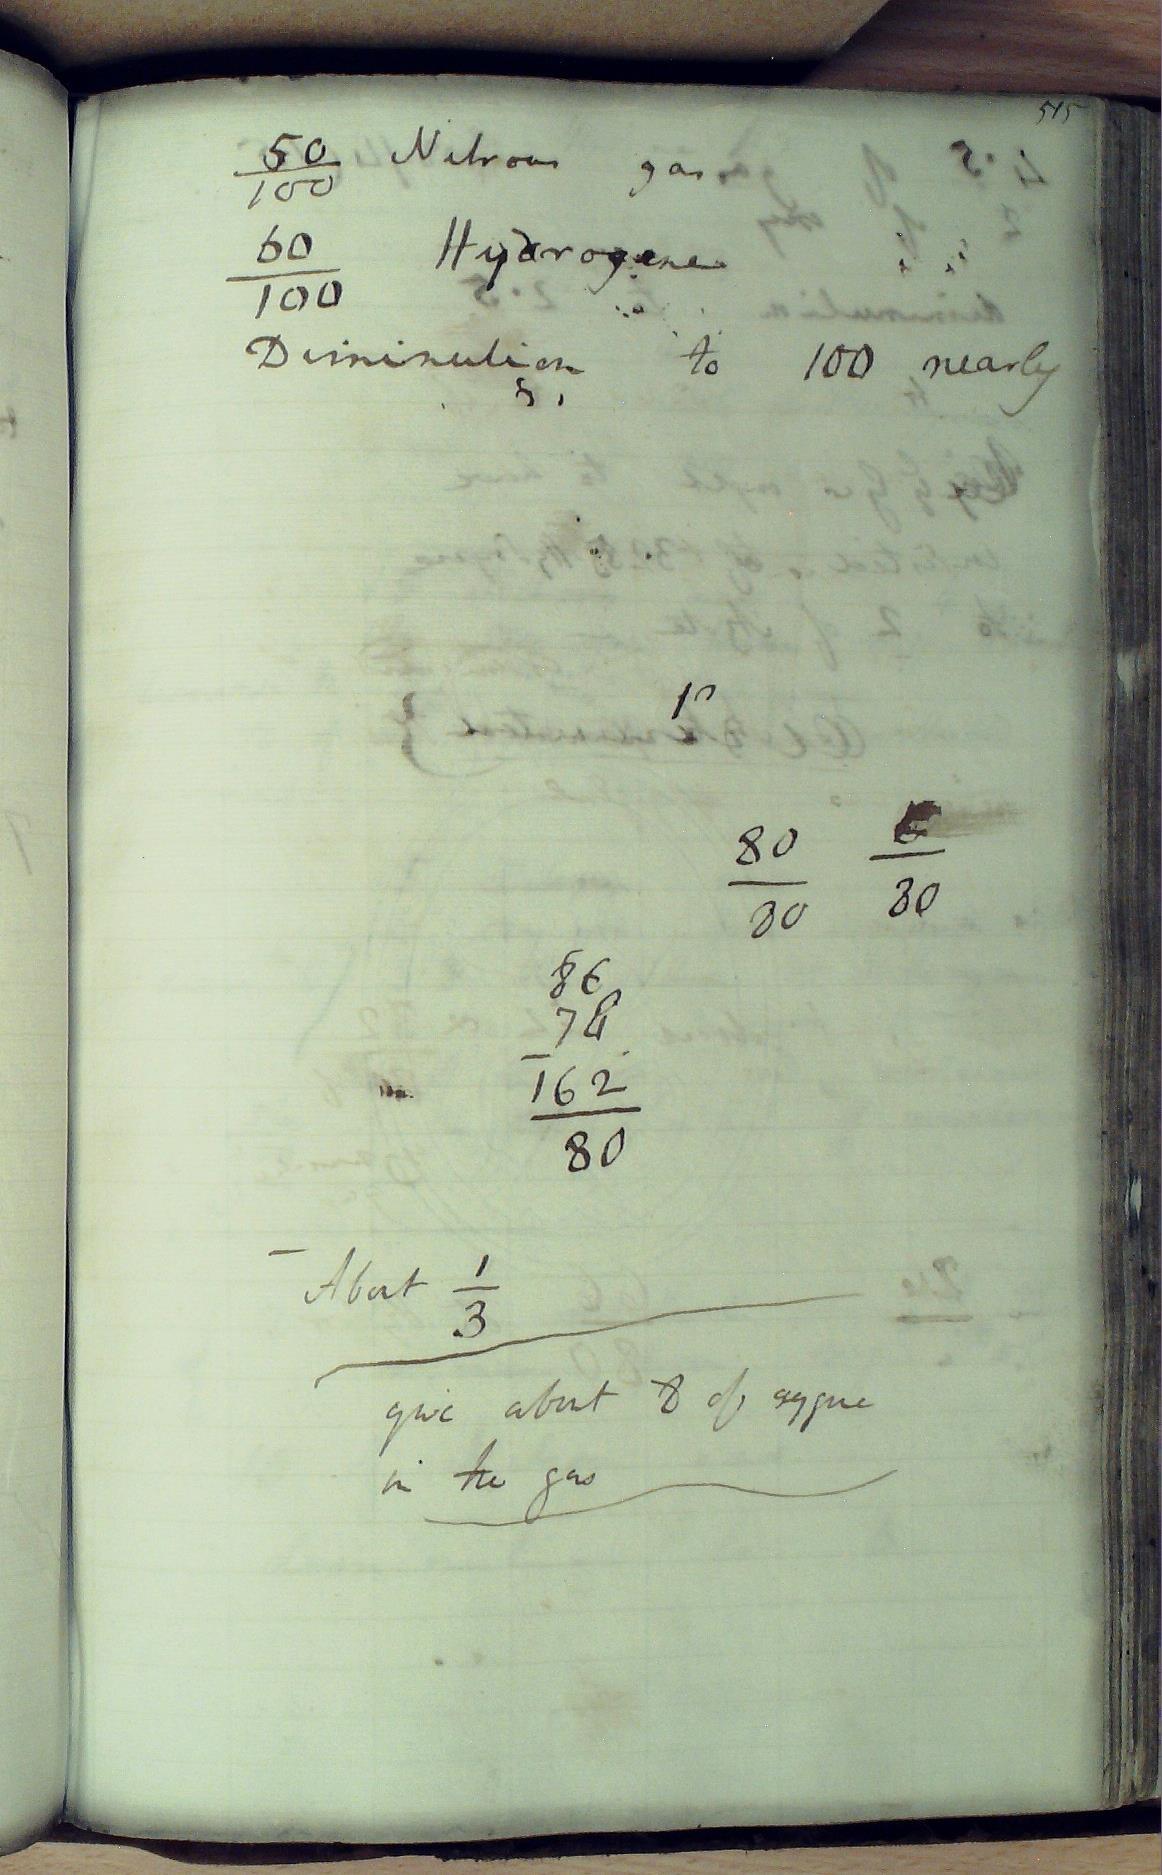 515
50 Nitrous gas
100
60 Hydrogene
100
Diminution to 100 nearly
80 6
30 30
86
74
162
80
About 1
3
give about 8 of oxygne
in the gas